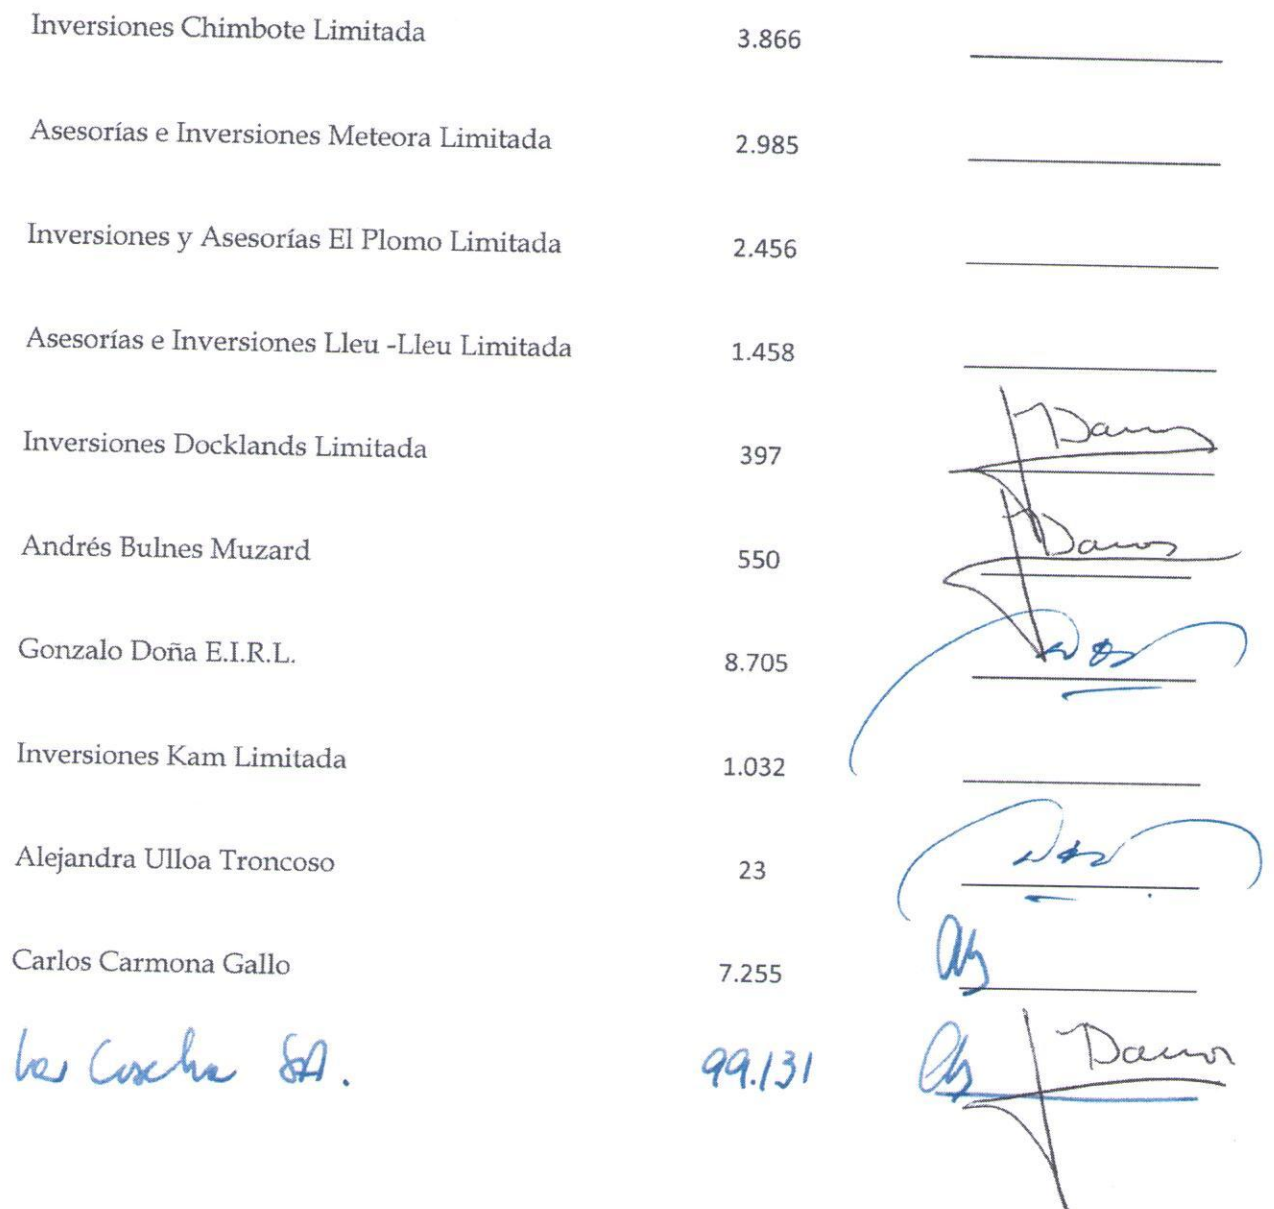 Inversiones Chimbote Limitada 3.866
Asesorías e Inversiones Meteora Limitada 2.985
Inversiones y Asesorías El Plomo Limitada 2.456
Asesorías e Inversiones Lleu -Lleu Limitada 1.458
Inversiones Docklands Limitada 397
Andrés Bulnes Muzard 550
Gonzalo Doña E.I.R.L. 8.705
Inversiones Kam Limitada 1.032
Alejandra Ulloa Troncoso 23
Carlos Carmona Gallo 7.255
S.A. 99.131